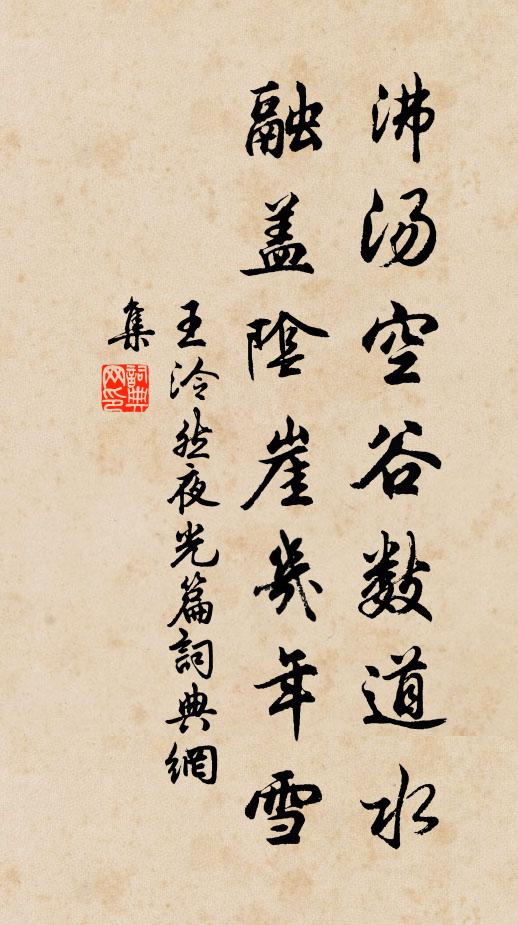 沸汤空谷数道水
融盖陰崖幾年雪
王泠然夜光篇詞典網
集
詞典
网印